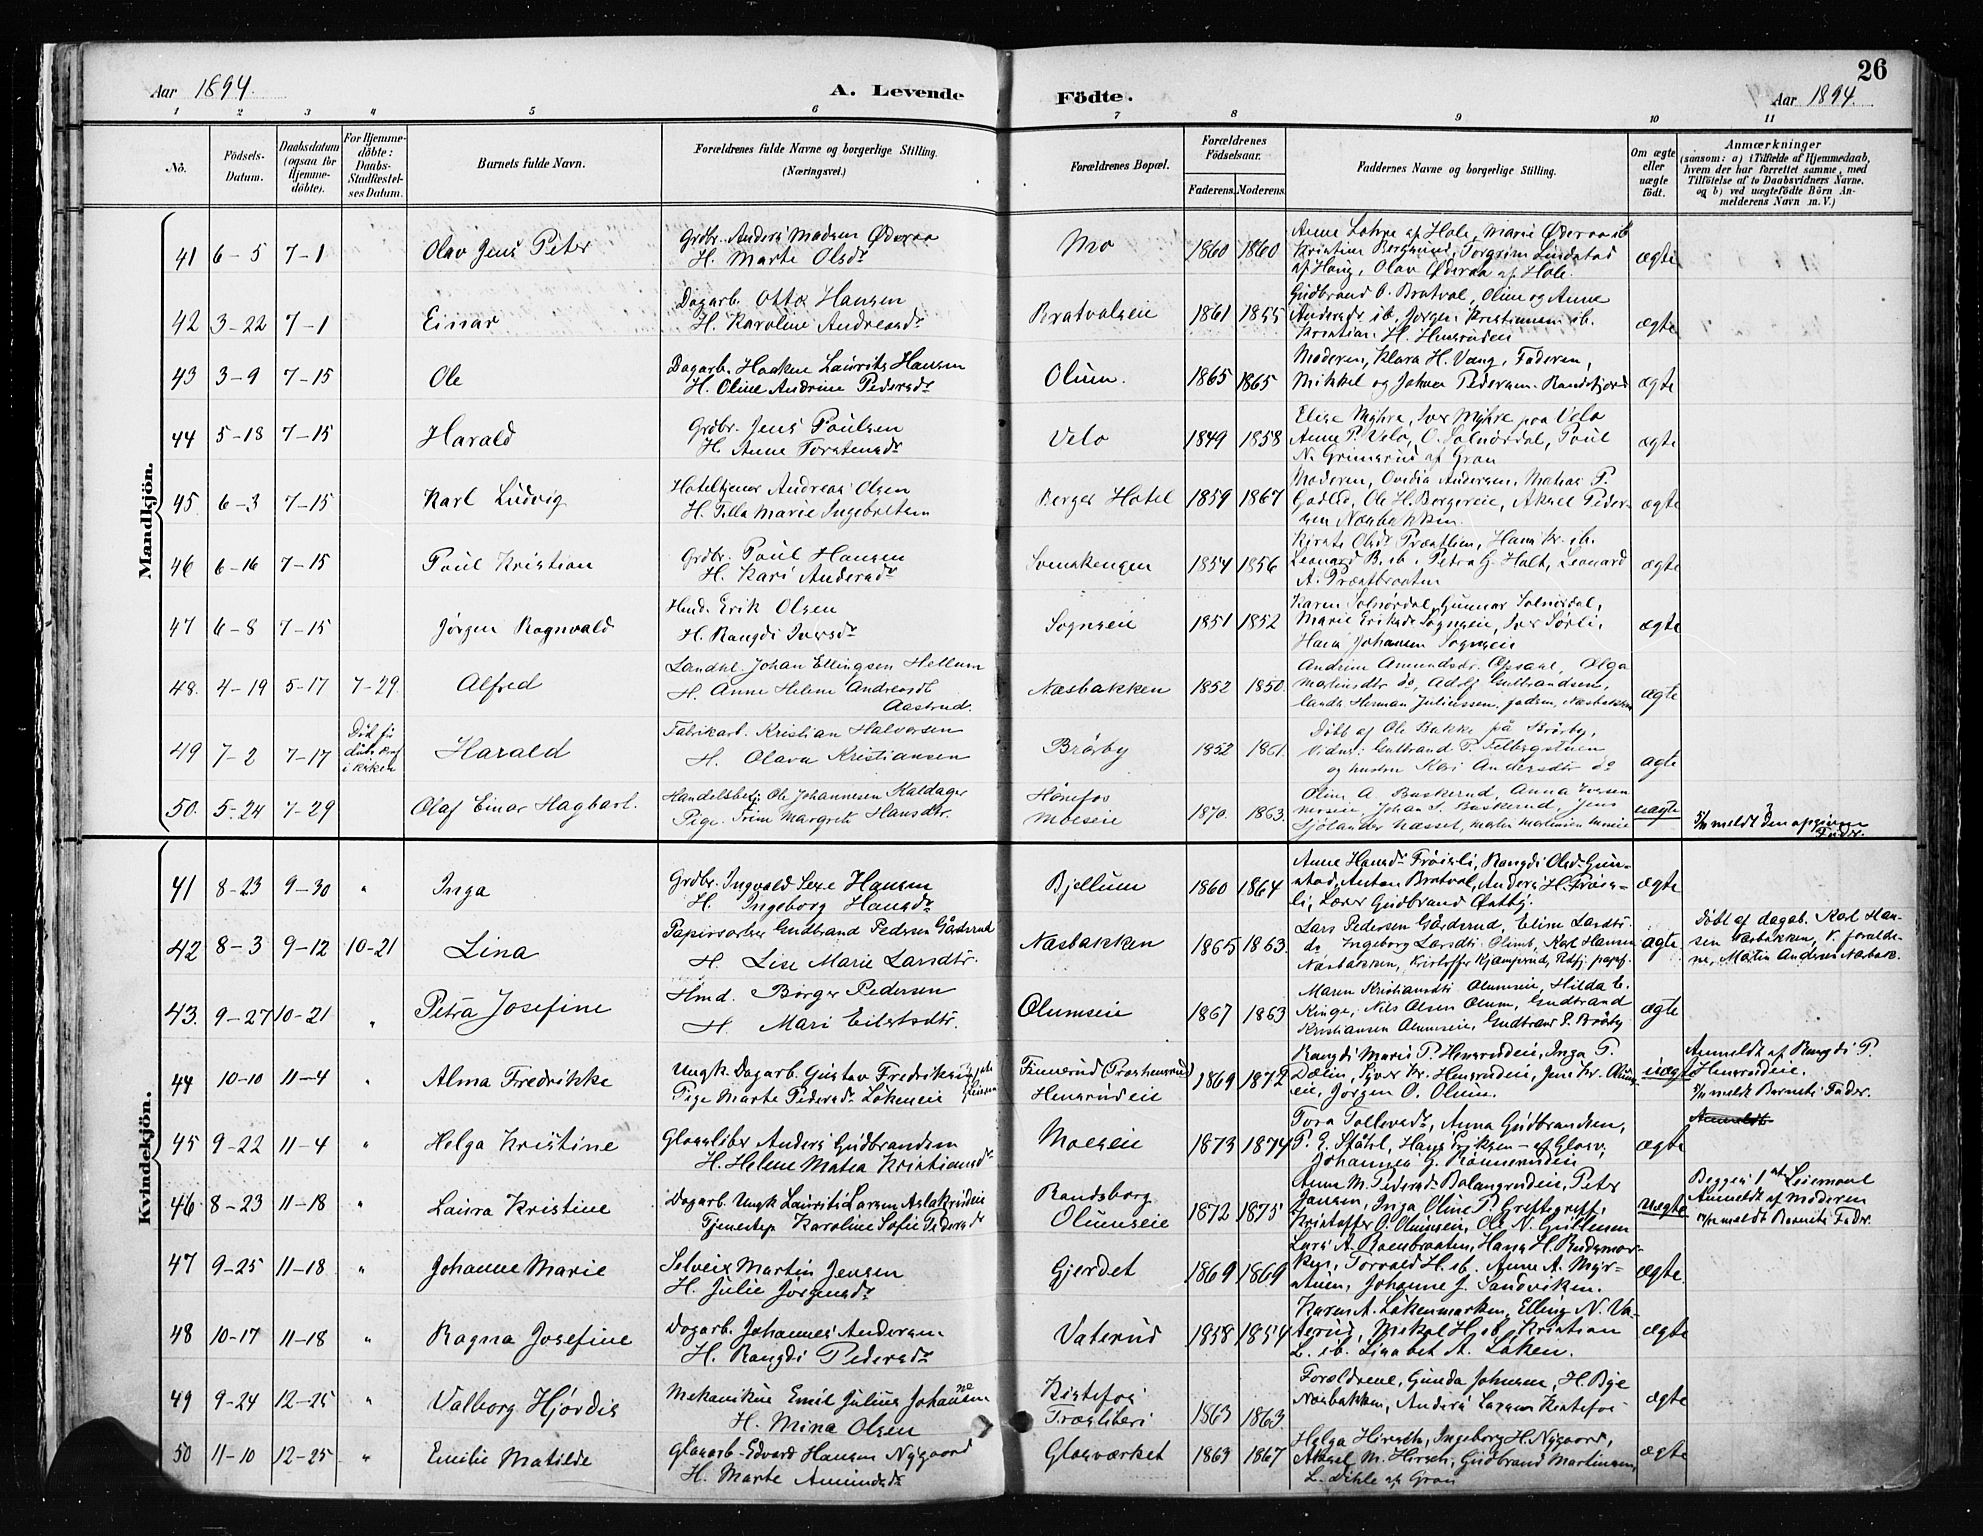 26
Aar 1894.
A. Levende Födte.
Aar 1894.
1 2 3 4 5 6 7 8 9 10 11
No.
Födsels-Datum.
Daabsdatum (ogsaa for Hjemme-döbte).
For Hjemme-döbte: Daabs-Stadfæstel-ses Datum.
Barnets fulde Navn.
Forældrenes fulde Navne og borgerlige Stilling. (Næringsvei.)
Forældrenes Bopæl.
Forældrenes Födselsaar.
Faderens. Moderens.
Faddernes Navne og borgerlige Stilling.
Om ægte eller uægte födt.
Anmærkninger
(saasom: a) i Tilfælde af Hjemmedaab, hvem der har forrettet samme, med Tilföielse af to Daabsvidners Navne, og b) ved uægtefödte Börn An-melderens Navn m. V.)
Mandkjön.
41 6-5 7-1 Olav Jens Peter Grdbr. Anders Madsen Øderaa
H. Marte Olsdr
Mo 1860 1860 Anne Lohre af Hole, Marie Øderaa ib
Kristine Bergsund, Torgrim Lindstad
af Haug, Olav Øderaa af Hole. ægte
42 3-22 7-1 Einar Dagarb. Otto Hansen
H. Karoline Andreasdr
Bratvalseie 1861 1855 Gudbrand O. Bratval, Oline og Anne
Andersdr ib. Jörgen Kristiansen ib.
Kristian H. Hensrudeie ægte
43 3-9 7-15 Ole Dagarb. Haaken Laurits Hansen
H. Oline Andrine Pedersdr
Olum. 1865 1865 Moderen, Klara H. Vang, Faderen,
Mikkel og Johan Pedersen Randsfjord ægte
44 5-18 7-15 Harald Grdbr. Jens Poulsen
H. Anne Torstensdr
Velo 1849 1858 Elise Myhre, Iver Myhre paa Velo
Anne P. Velo, O. Solnördal, Poul
N. Grinisrud af Gran ægte
45 6-3 7-15 Karl Ludvig Hoteltjener Andreas Olsen
H. Tilla Marie Ingeboltsen
Berger Hotel 1859 1867 Moderen, Ovidia Andersen, P.
Ole H. Bergereie, Aksel Peder-
sen Næsbakken. ægte
46 6-16 7-15 Poul Kristian Grdbr. Poul Hansen
H. Kari Andersdr
Svenskengen 1854 1856 Olsdr Præstlien, Hans Kr. ib.
Leonard B. ib. Petra G. Holt, Leonard
A. Præstbraaten ægte
47 6-8 7-15 Jörgen Ragnvald Hmd. Erik Olsen
H. Rangdi Iversdr
Sognseie 1851 1852 Karen Solnördal, Gunnar Solnördal,
Marie Eriksdr Sognseie, Iver Sörli,
Hans Johansen Sognseie ægte
48. 4-19 5-17 7-29 Alfred Landhl. Johan Ellingsen Hellum
H. Anne Helene Andreasdt
Aastrud.
Næsbakken 1852 1850. Andrine Amundsdtr. Opsahl, Olga
Martinsdtr do, Adolf Gulbrandsen,
Herman Juliussen, Næsbakken ægte
49 7-2 7-17 Död fö
i kirken
Harald Fabrikarb. Kristian Halvorsen
H. Olava Kristiansen
Brörby 1852 1861. Döbt af Ole Bakke på Brörby,
Vidner: Gulbrand P. Felbergstuen
og hustru Kari Andersdtr do ægte
50. 5-24 7-29 Olaf Einar Hagbart. Handelsbetj. Ole Johannesen Kaldager
Pige. Trine Margrete Hansdtr.
Hönefos
Moeseie 1870. 1863. Oline A. Buskerud, Anna Iversen
Moseie, Johan S. Buskerud, Jens
Sjölander Næsset, Martin Martinsen Moseie uægte meldt den opgivne
Fader.
Kvindekjön.
41 8-23 9-30 " Inga Grdbr. Ingvald Sexe Hansen
H. Ingeborg Hansdr
Bjellum 1860 1864 Anne Hansdr Fröisli, Rangdi Olsdr Gun-
stad, Anton Bratval, Anders H. Fröis-
li, Lærer Gudbrand Østby. ægte
42 8-3 9-12 10-21 Lina Papirarbeier Gudbrand Pedersen Gårdsrud
H. Lise Marie Larsdtr.
Næsbakken 1865 1863. Lars Pedersen Gårdsrud, Eline Larsdtr.
do, Ingeborg Larsdtr. Olimb, Karl Hansen
Næsbakken, Kristoffer Kjæmperud, ægte Döbt af dagarb. Karl Han-
sen Næsbakken, V. foreldre-
ne, Martin Anders Næsbak.
43. 9-27 10-21 " Petra Josefine Hmd. Börger Pedersen
H. Mari Eilertsdtr.
Olumseie 1867 1863 Maren Kristiansdtr Olumseie, Hilda E.
Ringe, Nils Olsen Olum, Gudbrand
Kristiansen Olumseie, Gudbrand P. Bröby ægte
44 10-10 11-4 " Alma Fredrikke Ungk. Dagarb. Gustav Fredriksen
Pige Marte Pedersdr Lökeneie
Finnerud (Trøshensrud)
Hensrudeie 1869 1872 Rangdi Marie P. Hensrudeie, Inga P.
Dælin, Syver Kr. Hensrudeie, Jens Kr. Olums-
eie, Jörgen O. Olum. uægte Anmeldt af Rangdi P.
Hensrudeie.
meldt Barnets Fader.
45 9-22 11-4 " Helga Kristine Glassliber Anders Gudbrandsen
H. Helene Matea Kristiansdr
Moeseie 1873 1874 Tora Tollevsdr, Anna Gudbrandsen,
P. E. Ståhl, Hans Eriksen - af Glasv,
Johannes G. Rönnerudeie ægte Anmeldt
46 8-23 11-18 " Laura Kristine Dagarb. Ungk Laurits Larsen Aslakrudeie
Tjenestep. Karoline Sofie Pedersdr
Randsborg
Olumseie 1872 1875 Anne M. Pedersdr Bolangrudeie, Peter
Jansen, Inga Oline P. Greftegreff,
Kristoffer O. Olumseie, Ole N. Gullensen uægte Begges 1ste Leiermaal
Anmeldt af Moderen
meldt Barnets Fader.
47 9-25 11-18 " Johanne Marie Selveier Martin Jensen
H. Julie Jörgensdr
Gjerdet 1869 1869 Lars A. Roenbraaten, Hans H. Rudsmar-
ken, Torvald H. ib. Anne A. Myr-
stuen, Johanne J. Sandviken. ægte.
48 10-17 11-18 " Ragna Josefine Dagarb. Johannes Andersen.
H. Rangdi Pedersdr
Vaterud 1858 1854 Karen A. Lökenmarken, Elling N. Va-
terud, Mikal H. ib. Kristian
L. ib. Lisabet A. Löken. ægte
49 9-24 12-25 " Valborg Hjördis Mekanikus Emil Julius Johansen
H. Mina Olsen
Kistefos
Træsliberi 1863 1863. Forældrene, Gunda Johnsen, H. Bye
Næsbakken, Anders Larsen Kistefos ægte
50 11-10 12-25 " Emilie Matilde Glasarb. Edvard Hansen Nygaard
H. Marte Amundsdr
Glasværket 1863 1867 Helga Hirsch, Ingeborg H. Nygaard,
Aksel M. Hirsch, Gudbrand Martinsen,
L. Dihle af Gran ægte